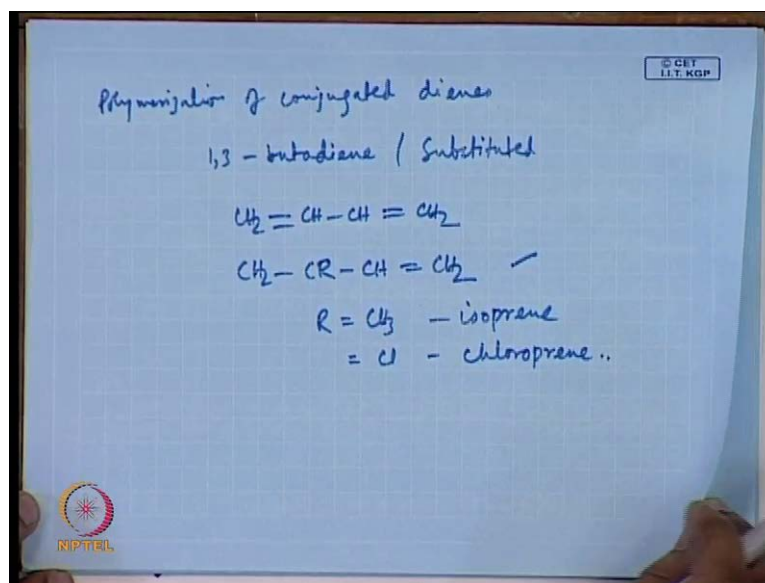 © CET
I.I.T. KGP
Polymerization of conjugated dienes
1,3 - butadiene / Substituted
CH₂ = CH - CH = CH₂
CH₂ - CR - CH = CH₂
R = CH₃ - isoprene
= Cl - chloroprene..
NPTEL